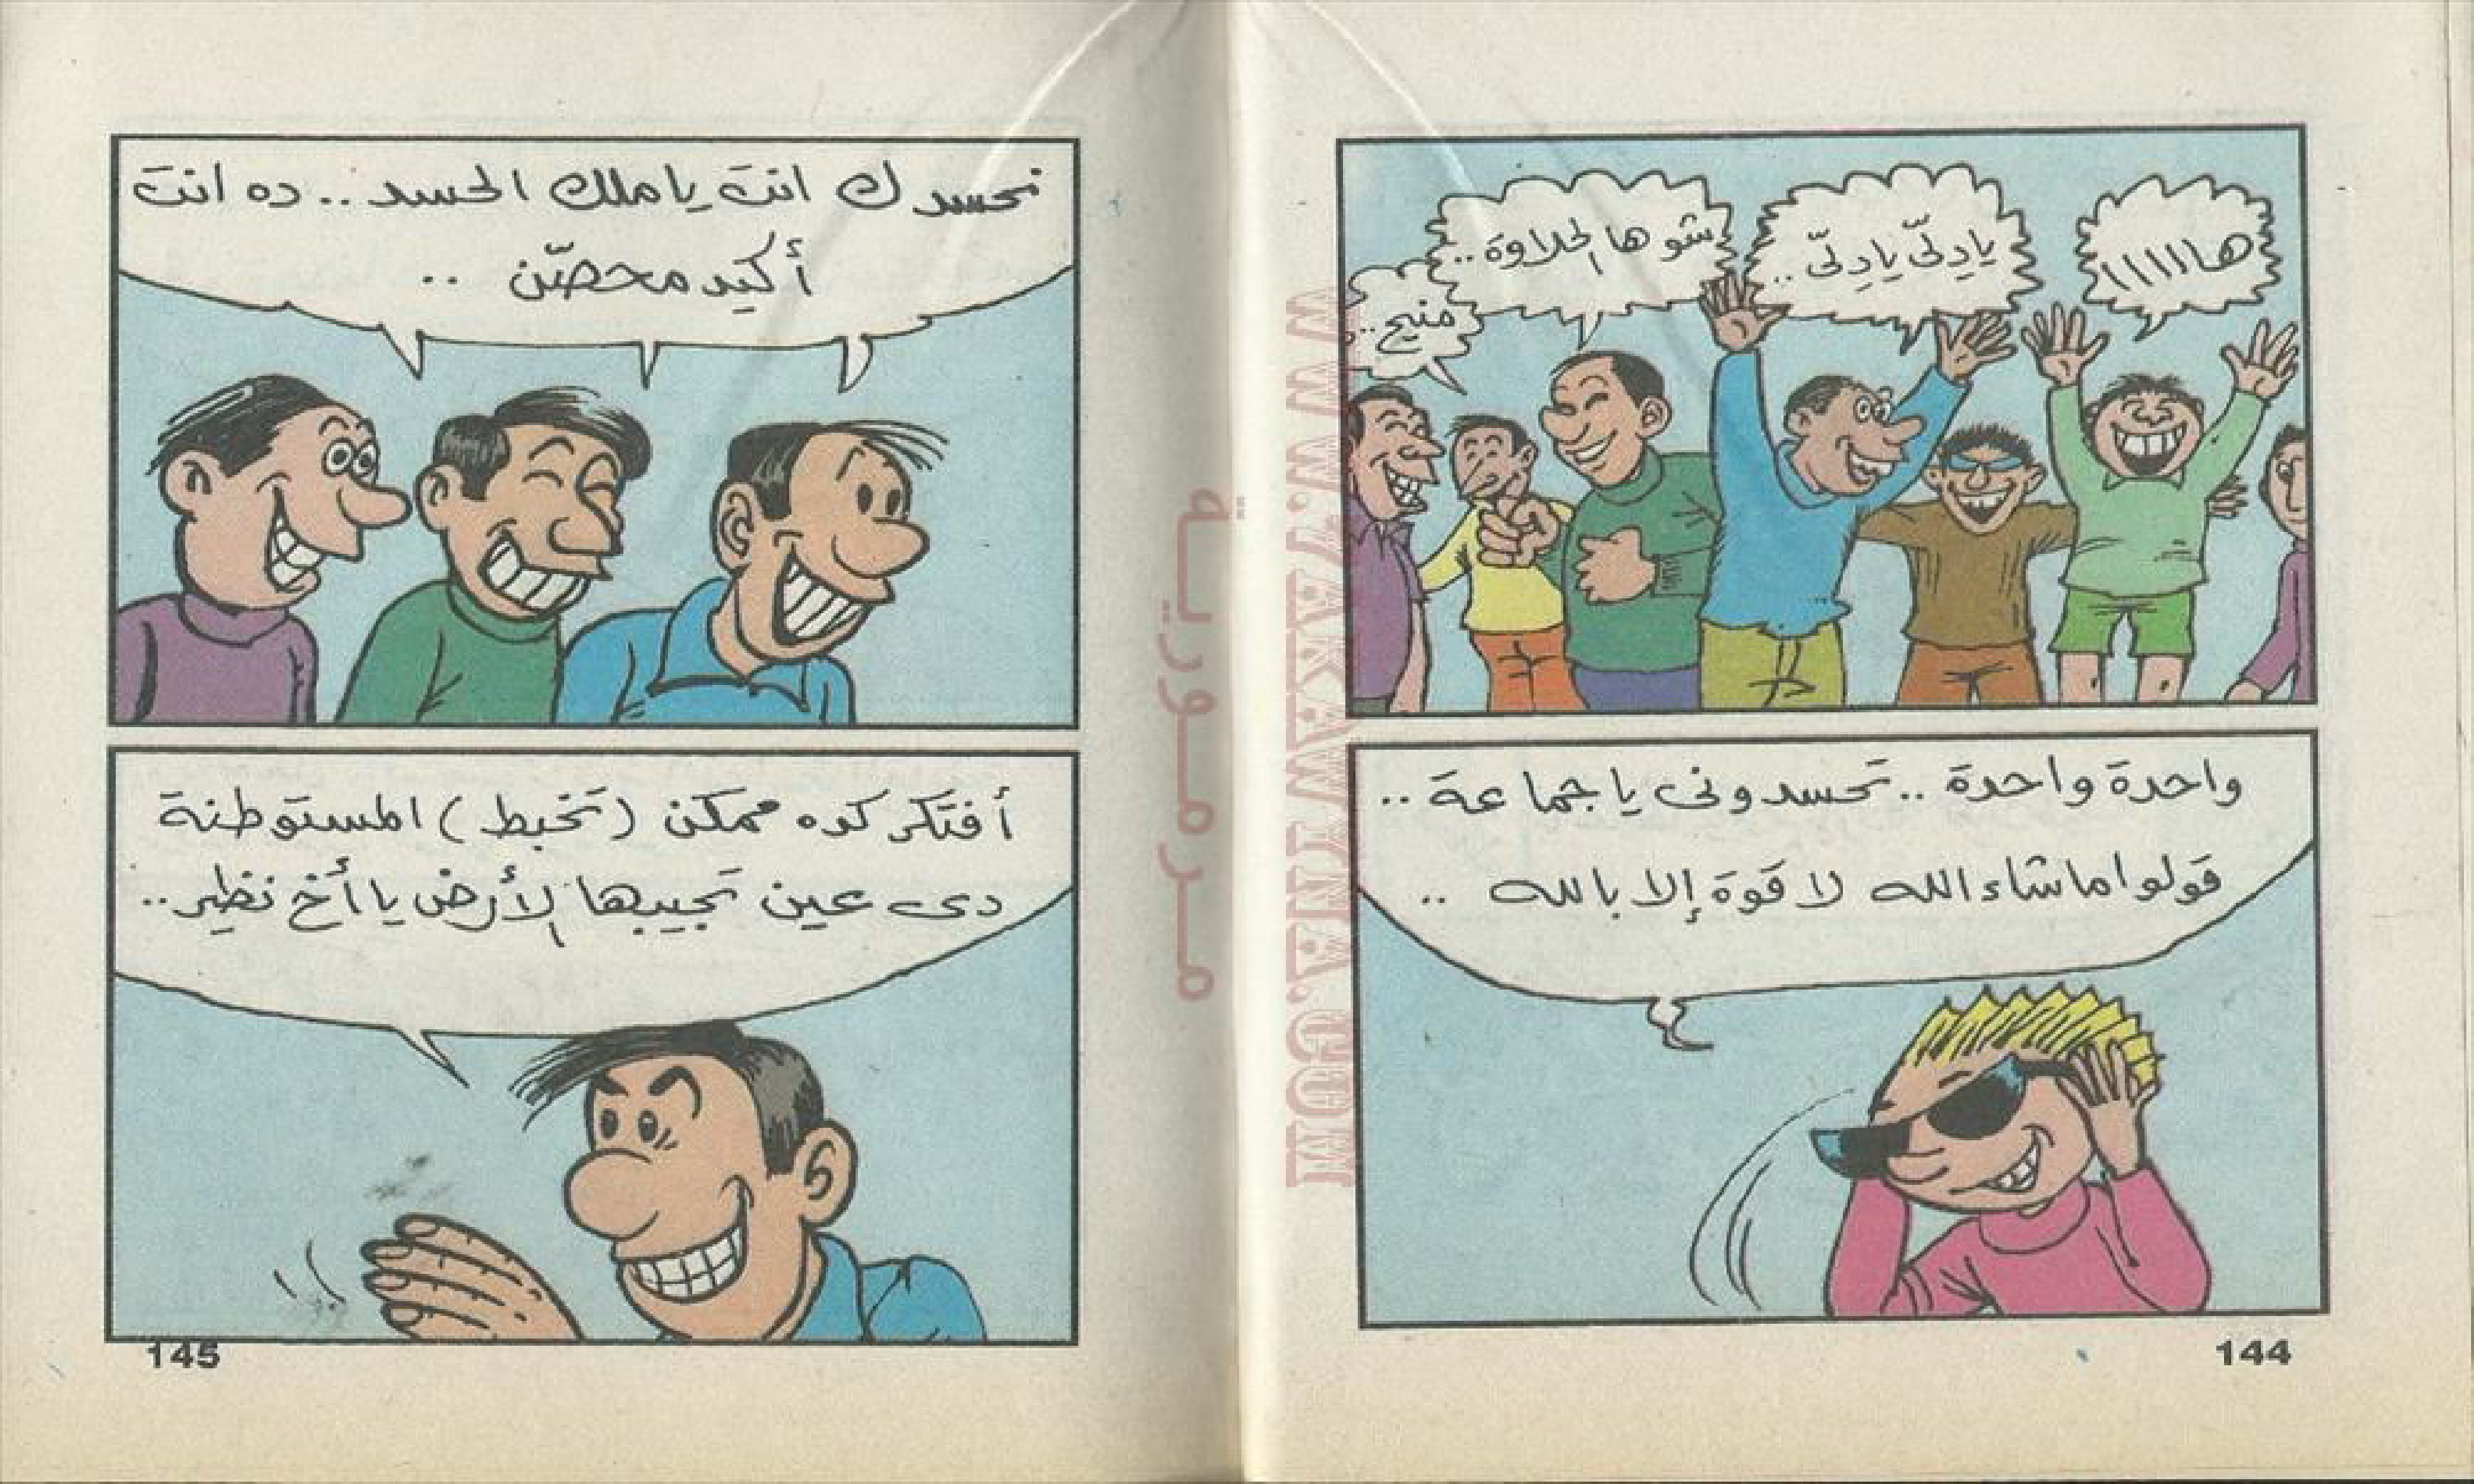 هااااا
يادِلّى يادِلّى ..
شو ها الحلاوة ..
منيح ..
واحدة واحدة .. تحسدونى يا جماعة ..
قولوا ما شاء الله لا قوة إلا بالله ..
144
نحسدك انت يا ملك الحسد .. ده انت
أكيد محصّن ..
أفتكر كده ممكن (تخبط) المستوطنة
دى عين تجيبها الأرض يا أخ نظير ..
145
مرمورية
WWW.ARAWYMEKYA.COM